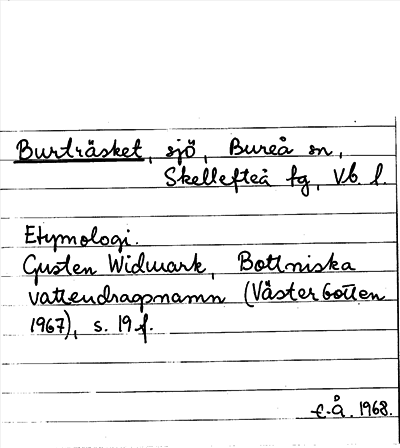 Burträsket, sjö, Bureå sn,
Skellefteå tg, Vb. l.
Etymologi.
Gusten Widmark, Bottniska
vattendragsnamn (Västerbotten
1967), s. 19 f.
E.Å. 1968.